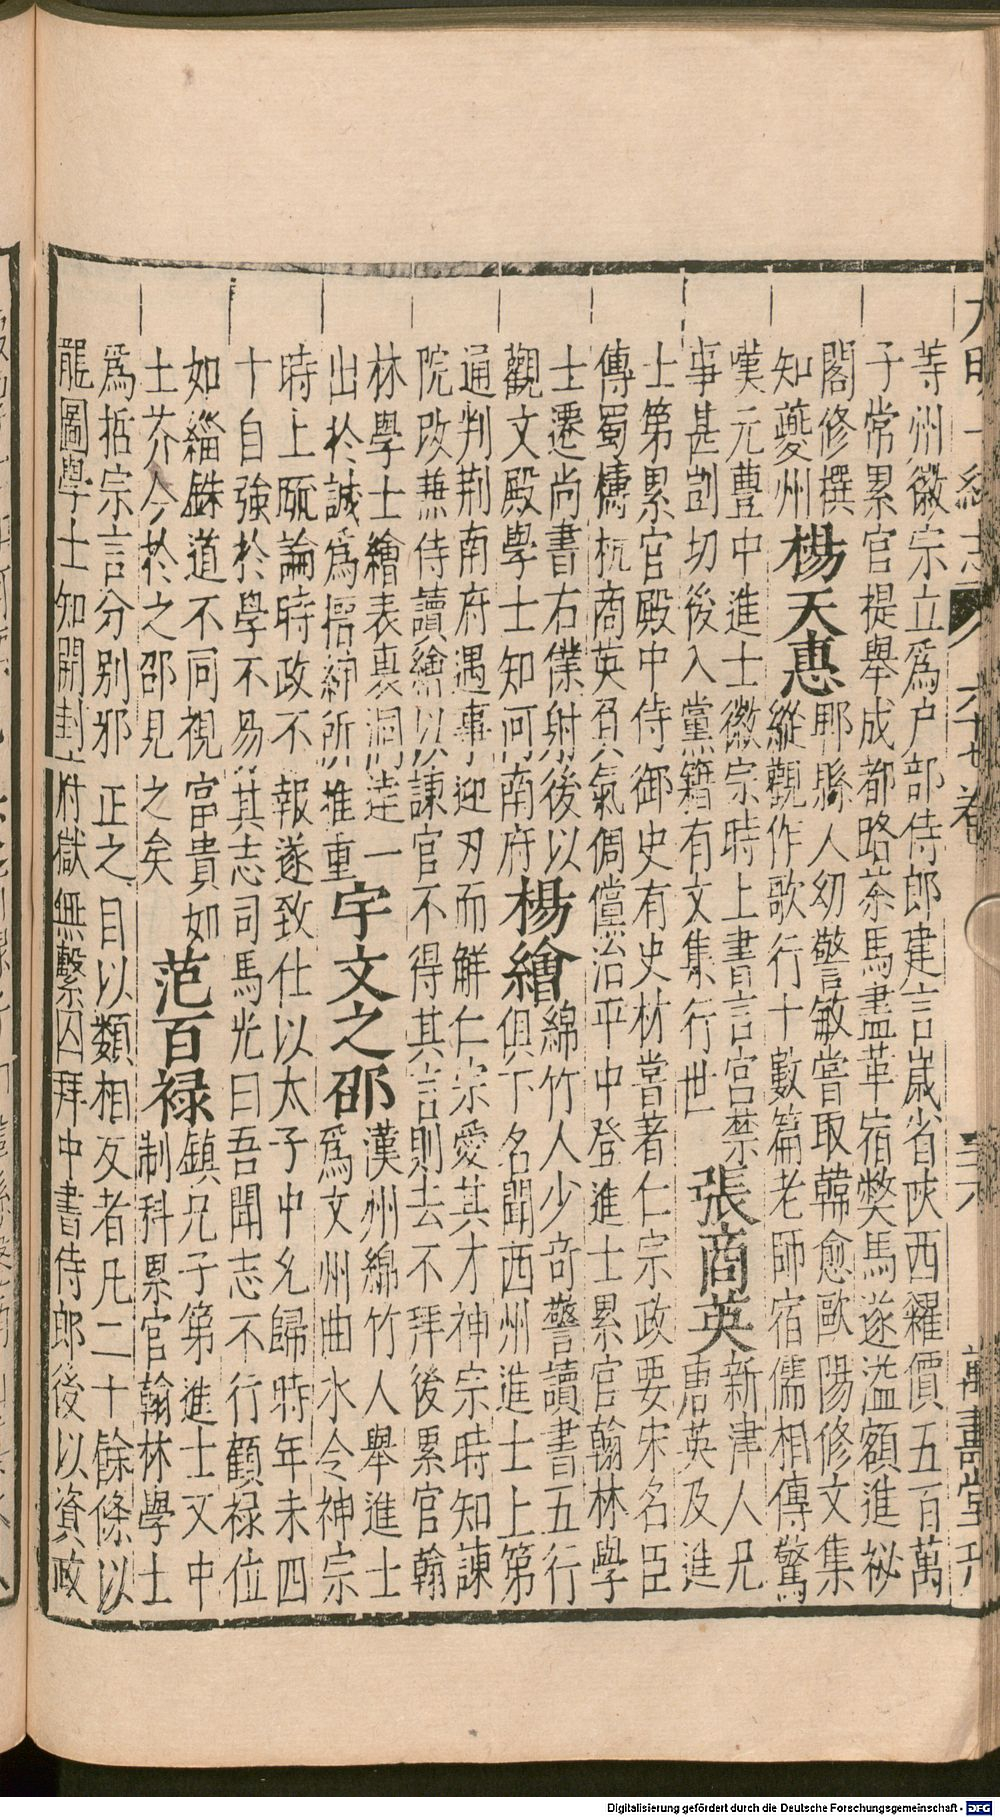 大明一統志 六十七卷 三十六 萬壽堂刊
等州徽宗立爲户部侍郎建言嵗省陜西糴價五百萬
子常累官提舉成都路茶馬盡革宿弊馬遂溢額進祕
閣修撰
知夔州
楊天惠
郫縣人幼警敏嘗取韓愈歐陽修文集
縱觀作歌行十數篇老師宿儒相傳驚
嘆元豊中進士徽宗時上書言宮禁
事甚剴切後入黨籍有文集行世
張商英
新津人兄
唐英及進
士第累官殿中侍御史有史材嘗著仁宗政要宋名臣
傳蜀檮杌商英負氣倜儻治平中登進士累官翰林學
士遷尚書右僕射後以
觀文殿學士知河南府
楊繪
綿竹人少竒警讀書五行
俱下名聞西州進士上第
通判荆南府遇事迎刃而解仁宗愛其才神宗時知諫
院改兼侍讀繪以諫官不得其言則去不拜後累官翰
林學士繪表裏洞達一
出於誠爲搢紳所推重
宇文之邵
漢州綿竹人舉進士
爲文州曲水令神宗
時上疏論時政不報遂致仕以太子中允歸時年未四
十自強於學不易其志司馬光曰吾聞志不行顧禄位
如緇銖道不同視富貴如
土芥今於之邵見之矣
范百禄
鎮兄子第進士又中
制科累官翰林學士
爲哲宗言分别邪正之目以類相反者凡二十餘條以
龍圖學士知開封府獄無繫囚拜中書侍郎後以資政
Digitalisierung gefördert durch die Deutsche Forschungsgemeinschaft - DFG